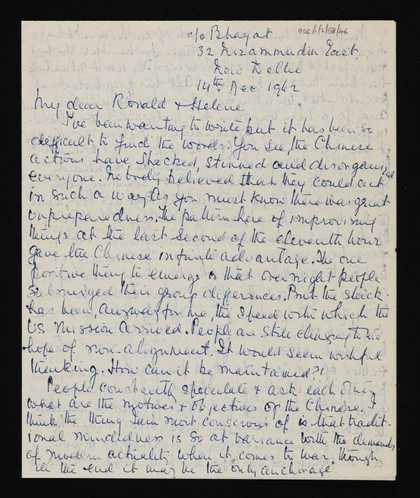 c/o Bhagat
32 Nizammudin East.
New Delhi
14th Dec 1962
My dear Ronald & Helene
I've been wanting to write but it has been so
difficult to find the words. You see, the Chinese
actions have shocked, stunned and disorganised
everyone. Nobody believed that they could act
in such a way. As you must know there was great
unpreparedness. The pattern here of improvising
things at the last second of the eleventh hour
gave the Chinese infinite advantage. The one
positive thing to emerge is that overnight people
submerged their group differences. But the shock
has been, anyway for me, the speed with which the
US Mission arrived. People are still clinging to the
hope of non-alignment. It would seem wishful
thinking. How can it be maintained?!
People constantly speculate & ask each other
what are the motives & objectives of the Chinese. I
think the thing I am most conscious of is that tradit-
ional mindedness is so at variance with the demands
of modern actuality when it comes to war, though
in the end it may be the only 'anchorage'